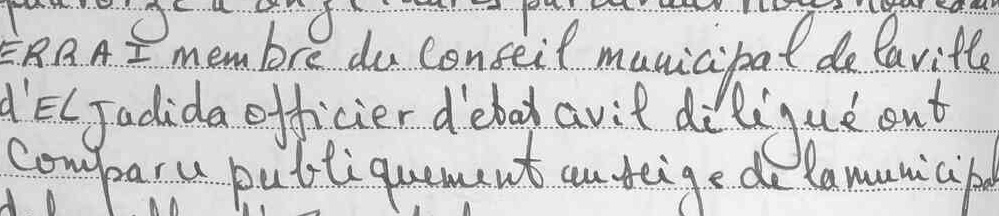 ERRAI membre du Conseil municipal de la ville
d'EL Jadida officier d'etat civil délégué ont
Comparu publiquement au seige de la municipal